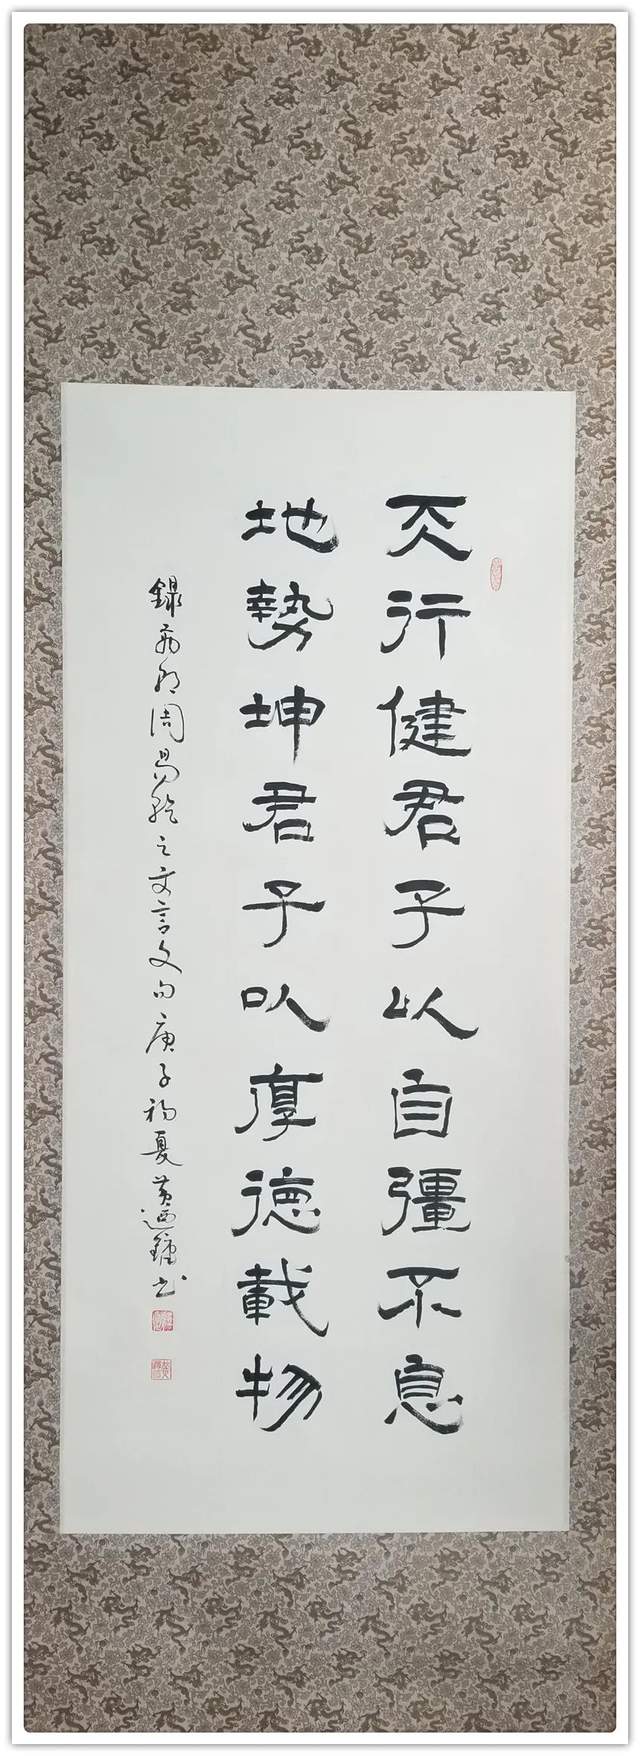 天行健君子以自彊不息
地勢坤君子以厚德載物
錄 周易 之 言文句庚子初夏黃 鍾书